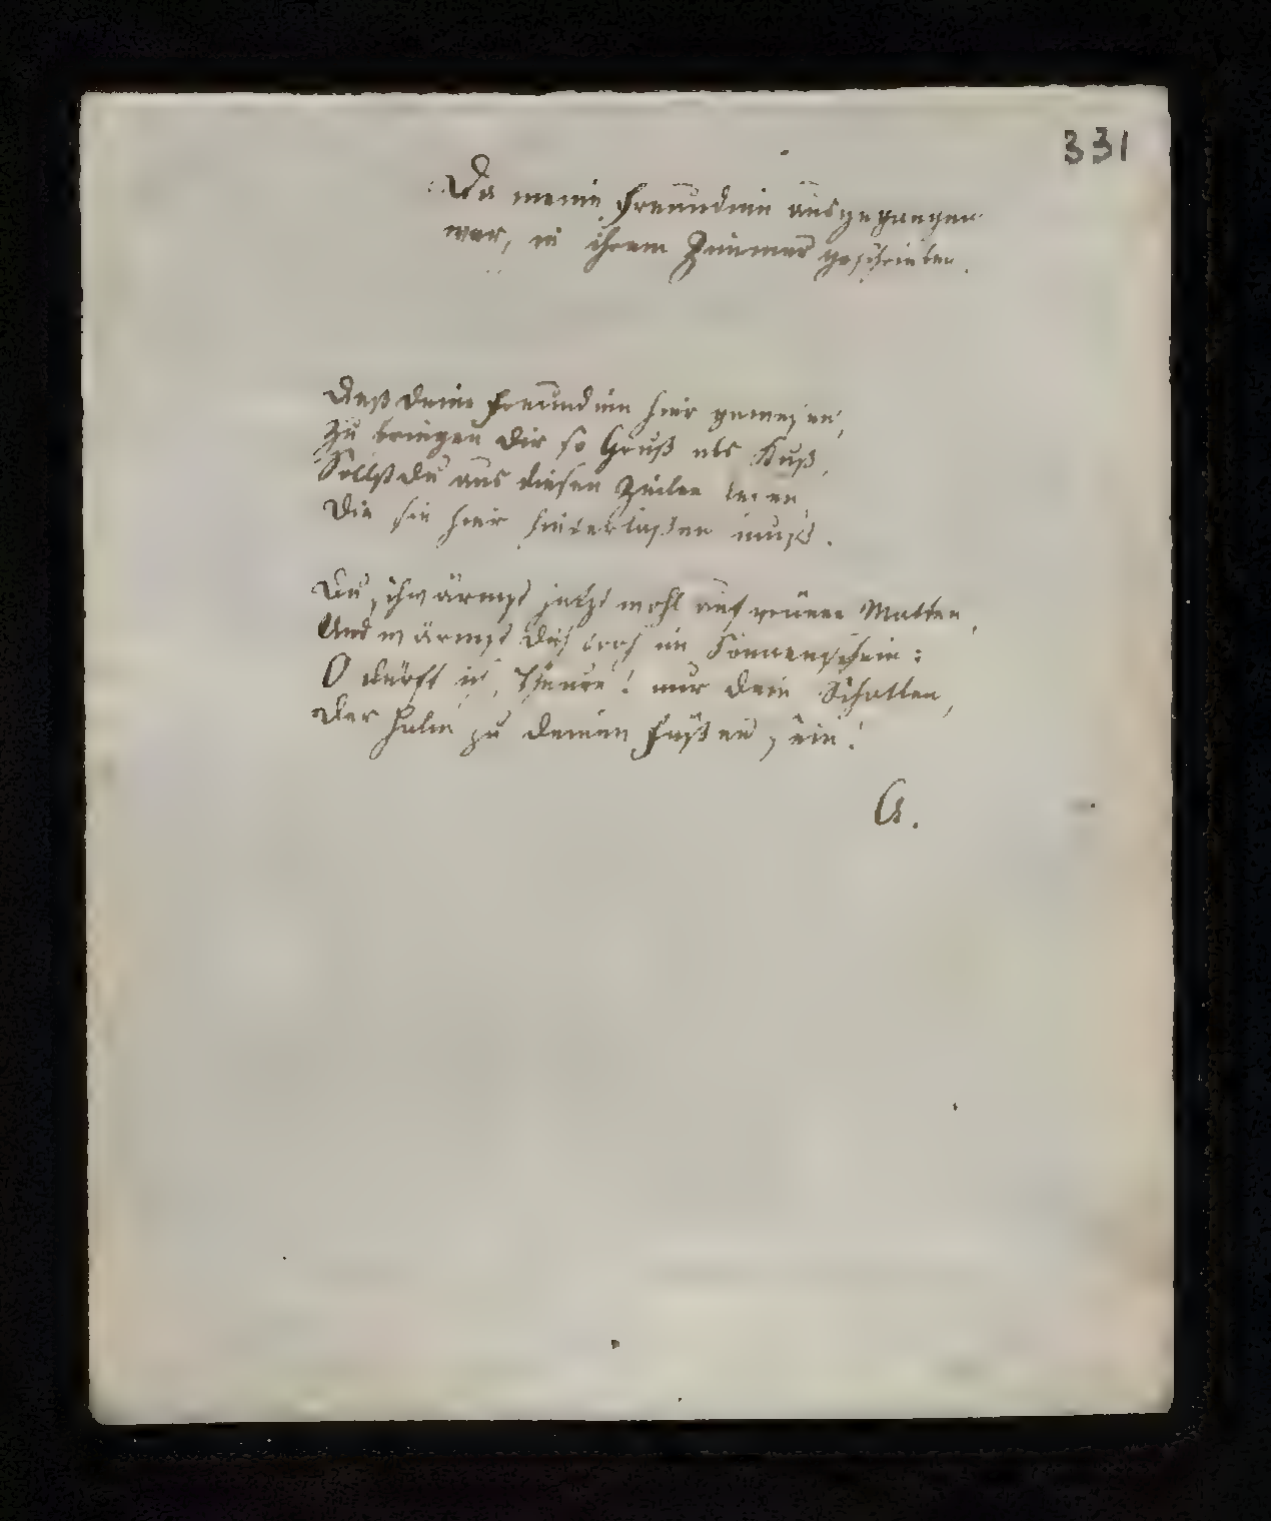 331
Da meine Freundinn ausgegangen
war, in ihrem Zimmer geschrieben.
Daß deine Freundinn hier gewesen,
Zu bringen dir so Gruß als Kuß,
Sollst du aus diesen Zeilen lesen,
Die sie hier hinterlaßen muß.
Du schwärmst jetzt wohl auf grünen Matten,
Und wärmst dich im Sonnenschein:
O dürft ich, Theure! nur dein Schatten,
Der Halm zu deinen Füßen sein!
G.